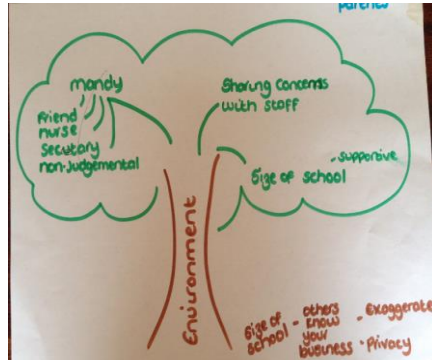 parents
mandy
Friend
nurse
Secutary
non-judgemental
Sharing Concerns
with staff
- Supportive
Size of school
Environment
Size of school - others know your business - Exaggerate
- Privacy